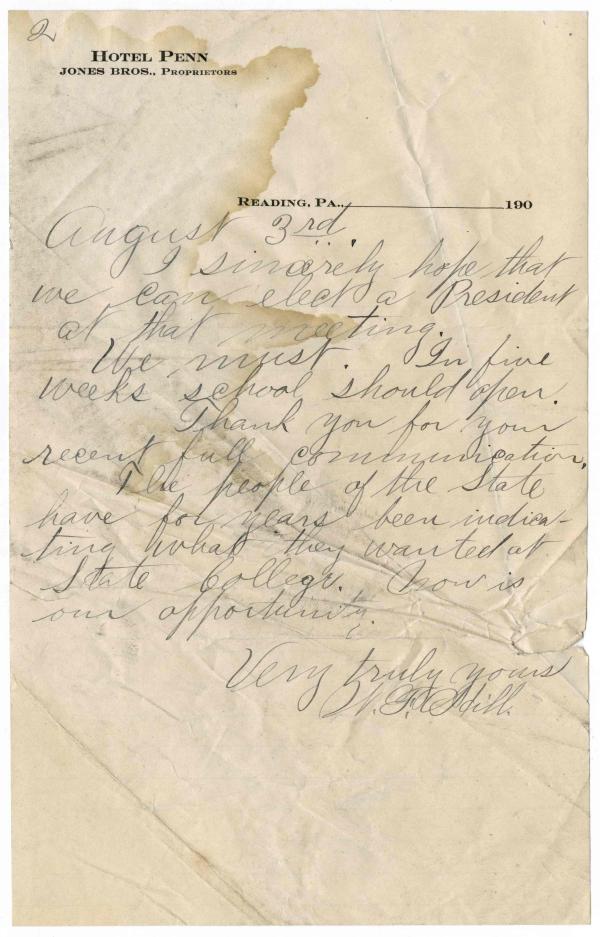 2
HOTEL PENN
JONES BROS., PROPRIETORS
READING, PA., 190
August 3rd.
I sincerely hope that
we can elect a President
at that meeting.
We must. In five
weeks school should open.
Thank you for your
recent full communication.
The people of the State
have for years been indica-
ting what they wanted at
State College. Now is
our opportunity.
Very truly yours
W. F. Hill.